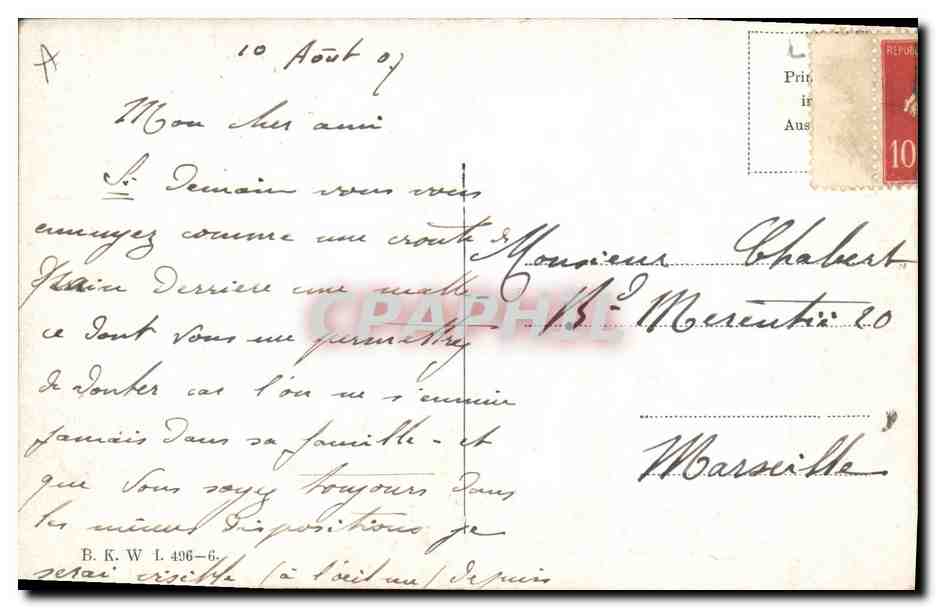 10 Août 07
Mon cher ami
Si Demain vous vous
ennuyez comme une croûte de
pain Derrière une malle
ce dont vous me permettrez
de douter car l'on ne s'ennuie
jamais Dans sa famille - et
que vous soyez toujours Dans
les mêmes Dispositions je
serai visible (à l'œil nu) depuis
B. K. W I. 496-6.
Prin
in
Aus
REPUB
10
Monsieur Chabert
Bd Merentié 20
Marseille
CPAPHIL